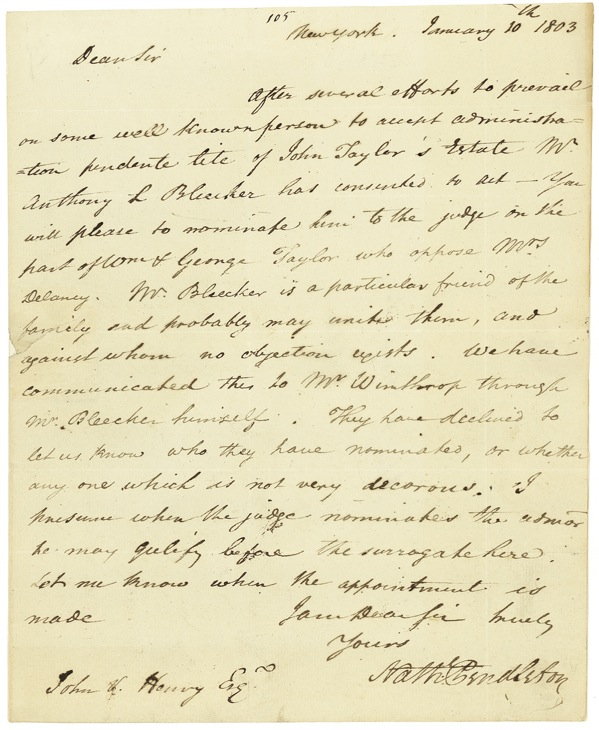 105
New York. January 10th 1803
Dear Sir
After several efforts to prevail
on some well known person to accept administra=
=tion pendente lite of John Taylor's Estate Mr.
Anthony L Bleecker has consented to act – You
will please to nominate him to the judge on the
part of Wm & George Taylor who oppose Mrs
Delaney. Mr. Bleecker is a particular friend of the
family and probably may unite them, and
against whom no objection exists. We have
communicated this to Mr Winthrop through
Mr. Bleecker himself. They have declined to
let us know who they have nominated, or whether
any one which is not very decorous. I
presume when the judge nominates the admor
he may qulify before the surrogate here.
Let me know when the appointment is
made
I am Dear Sir truely
Yours
Nathl Pendleton
John V. Henry Esqr.